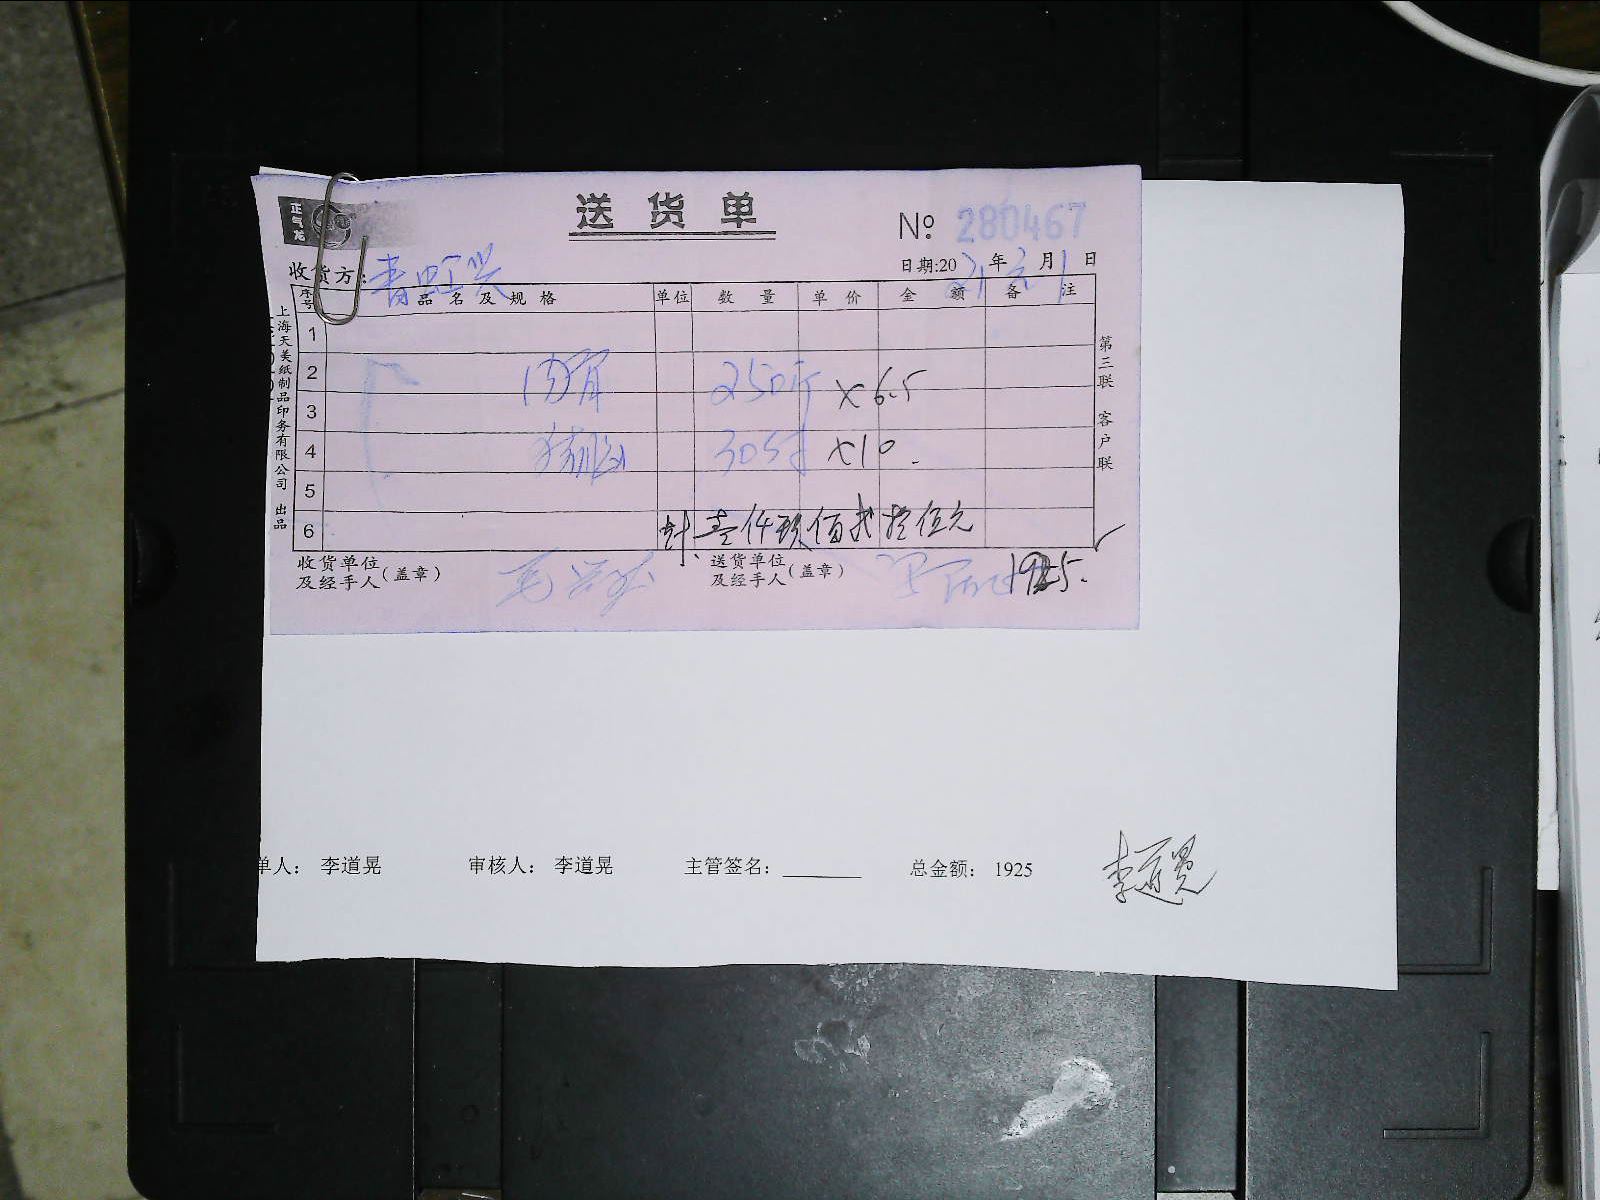 正气龙
送货单
№ 280467
收货方: 青虹兴
日期:2021年 月1日
序号 品名及规格 单位 数量 单价 金额 备注
1
2 肉 250斤 ×6.5
3
4 猪 305寸 ×10.
5
6 计:壹仟玖佰贰拾伍元
收货单位及经手人(盖章)
送货单位及经手人(盖章)
1925.
上海天美纸制品印务有限公司 出品
第三联 客户联
单人: 李道晃 审核人: 李道晃 主管签名: 总金额: 1925
李道晃